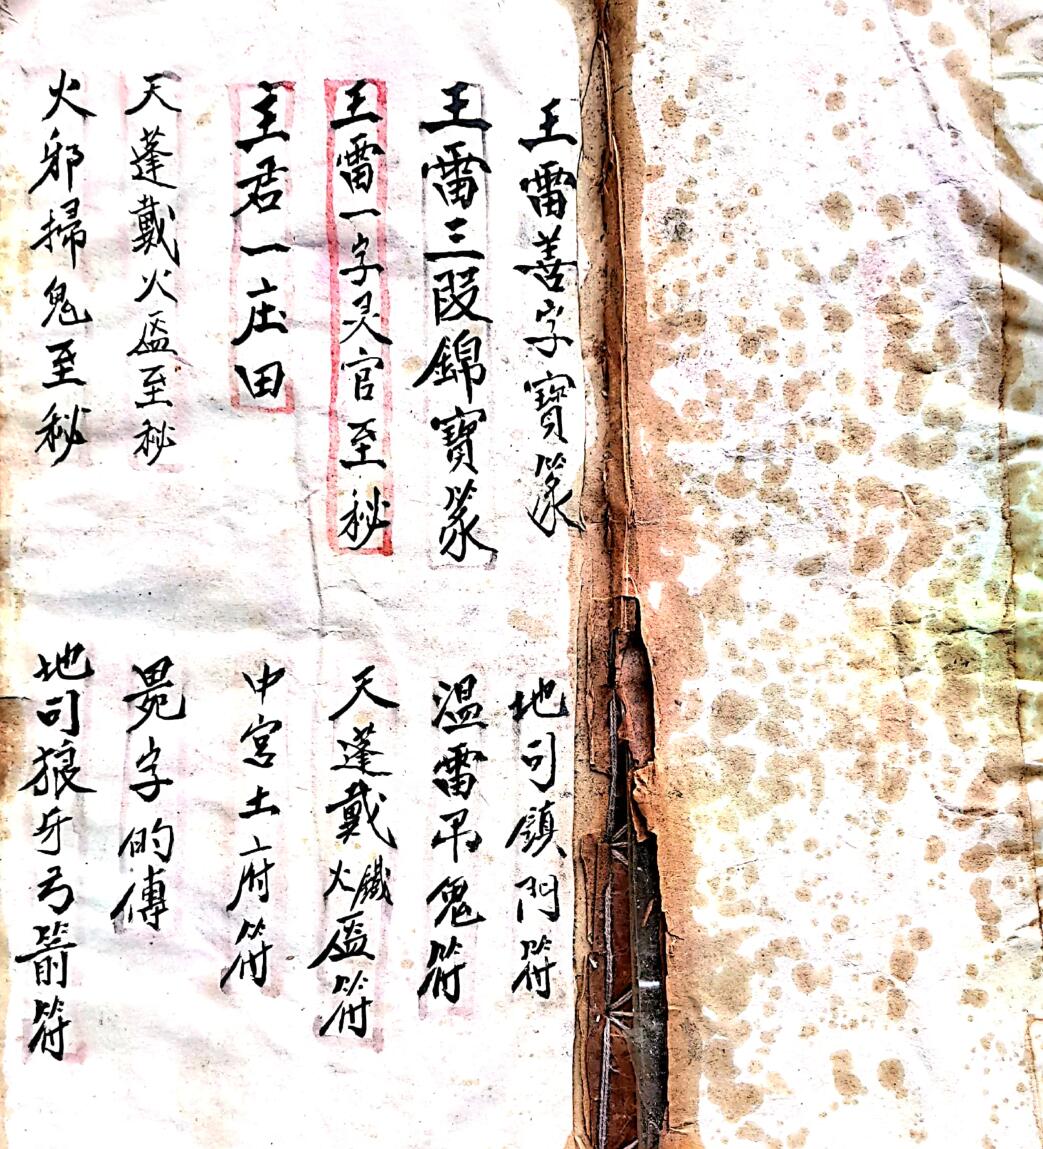 王雷善字寶篆
地司鎮門符
王雷三段錦寶篆
温雷吊鬼符
王雷一字灵官至秘
天蓬戴火鐵盔符
主君一庄田
中宮土府符
天蓬戴火盔至秘
字的傳
火邪掃鬼至秘
地司狼牙弓箭符